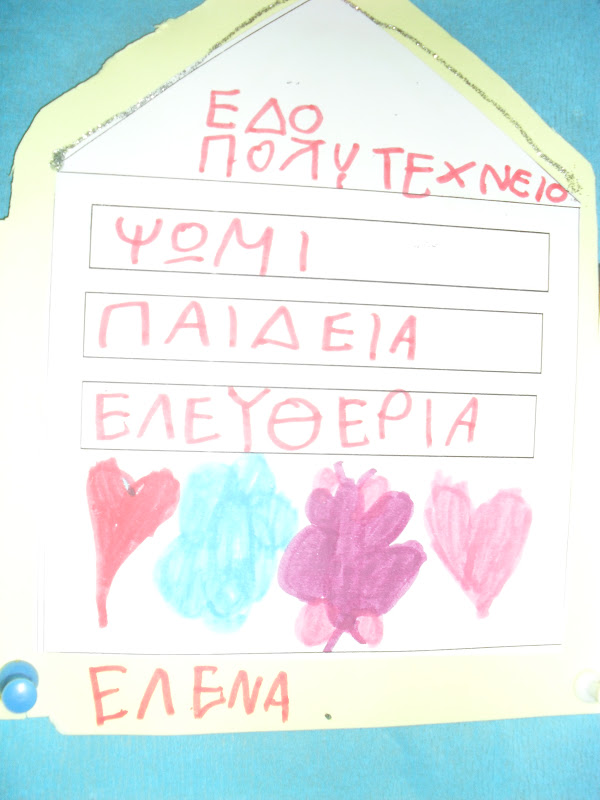 ΕΔΟ
ΠΟΛΥΤΕΧΝΕΙΟ
ΨΩΜΙ
ΠΑΙΔΕΙΑ
ΕΛΕΥΘΕΡΙΑ
ΕΛΕΝΑ